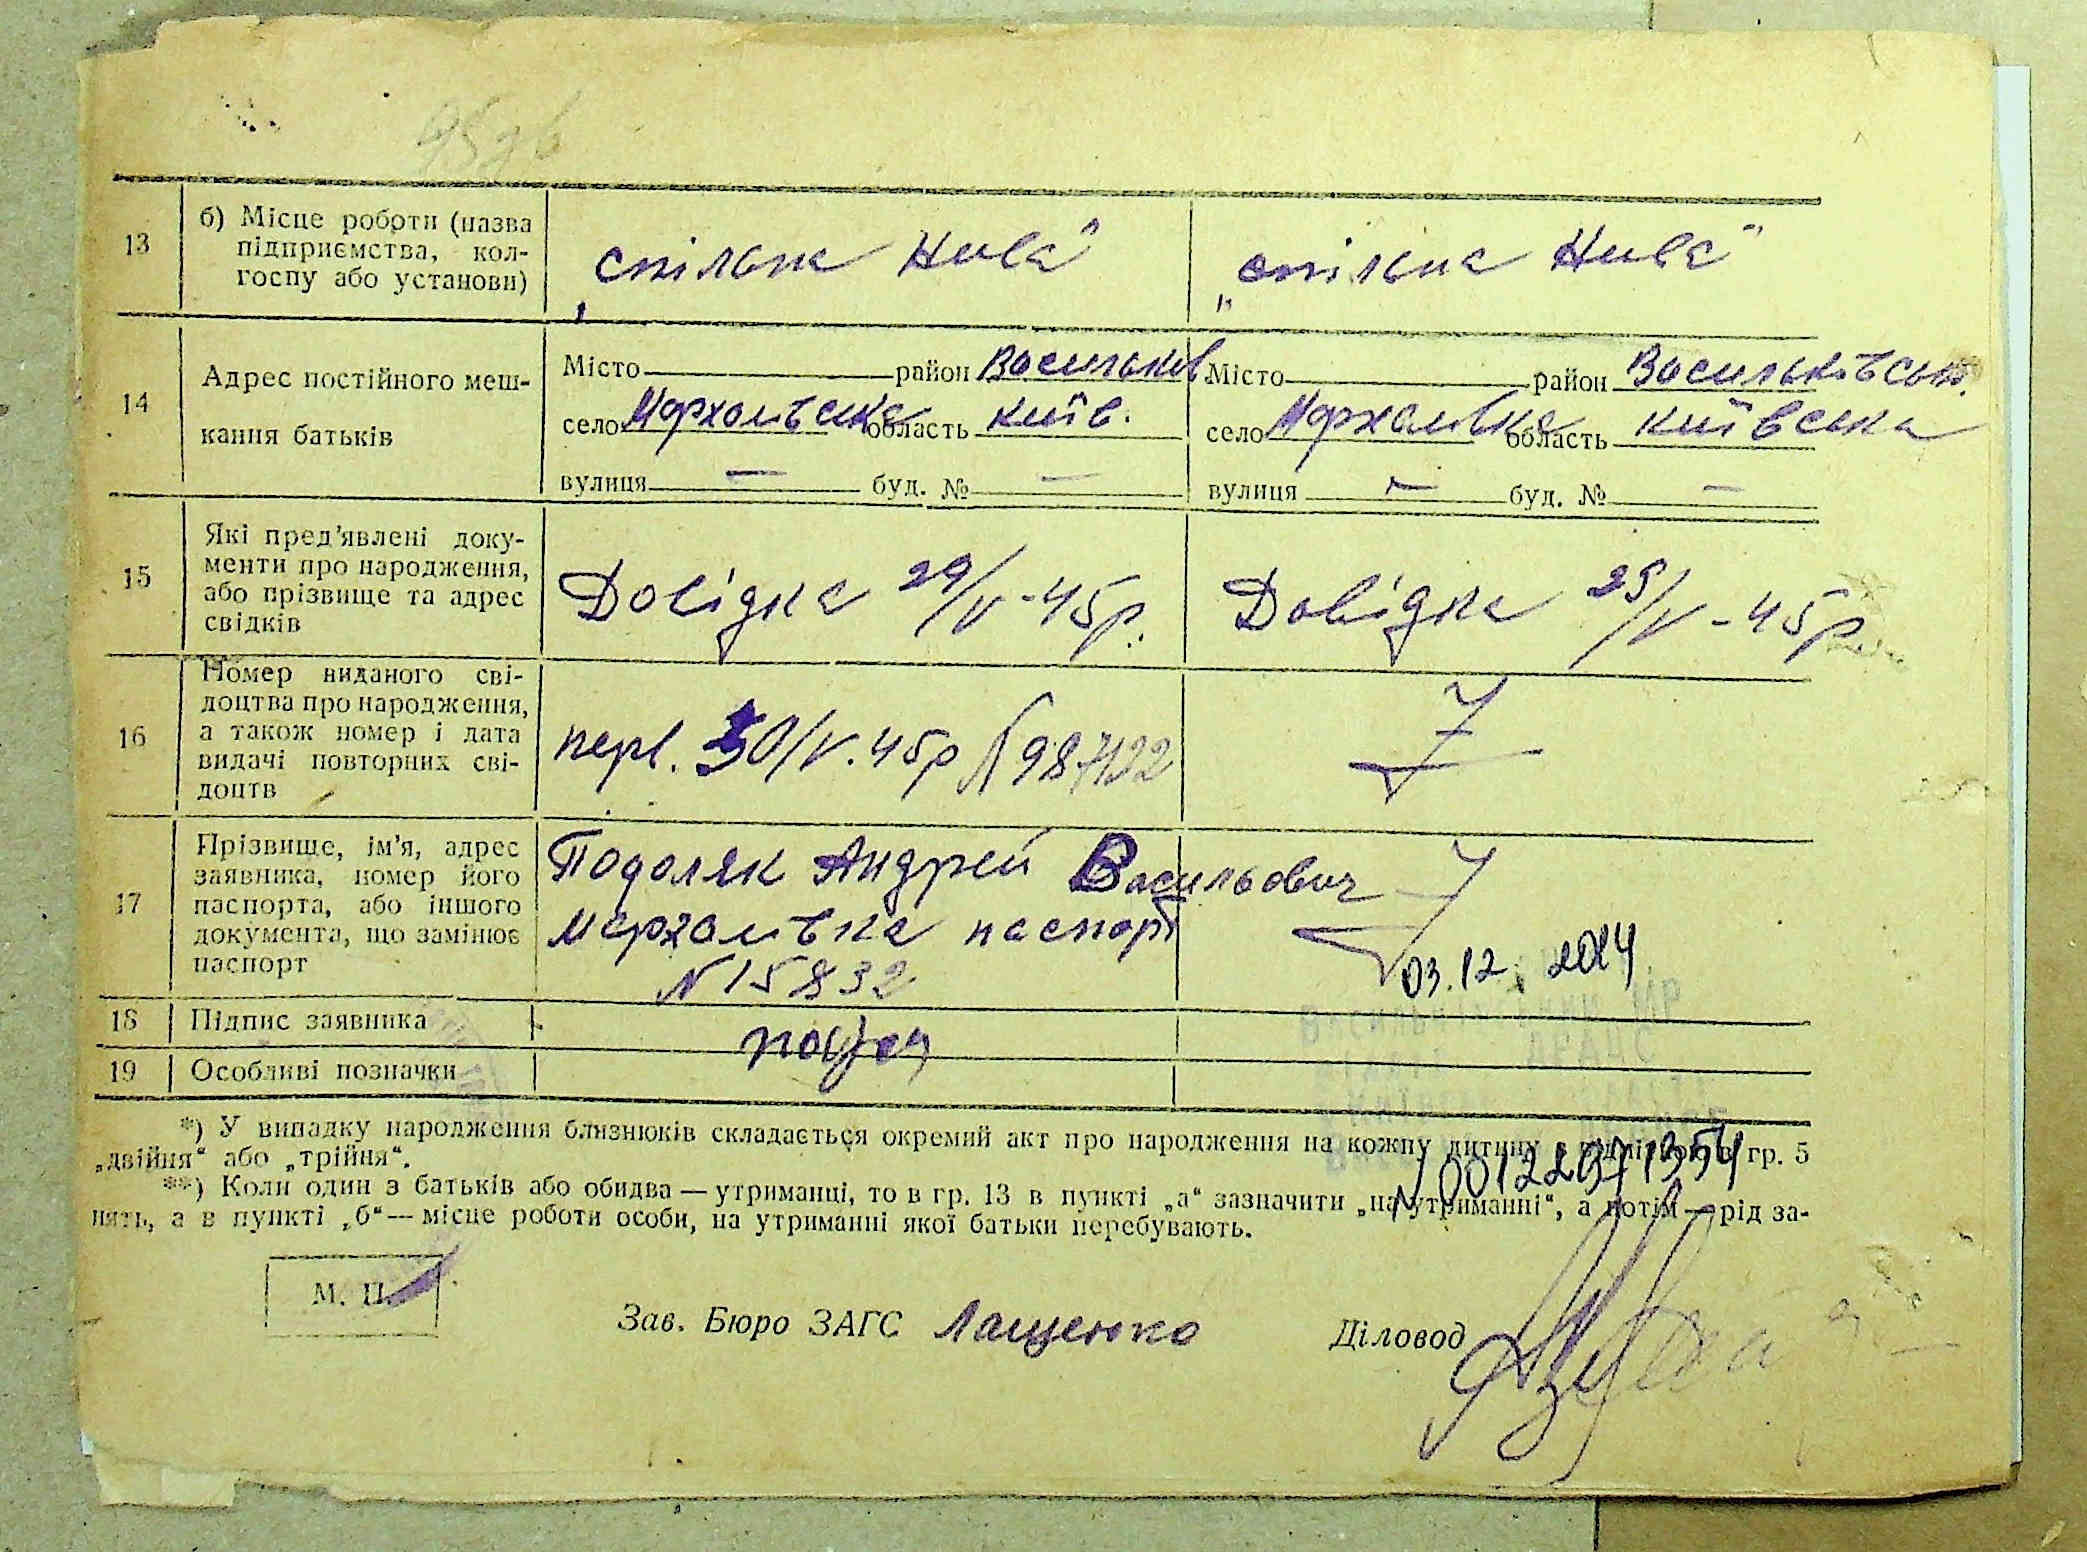 13
б) Місце роботи (назва підприємства, колгоспу або установи)
„спільна Нива"
„спільна Нива"
14
Адрес постійного мешкання батьків
Місто район Васильків.
село Мархалівка область Київ.
вулиця — буд. № —
Місто район Васильківськ.
село Мархалівка область Київська
вулиця — буд. № —
15
Які пред'явлені документи про народження, або прізвище та адрес свідків
Довідка 29/V-45р.
Довідка 29/V-45р
16
Номер виданого свідоцтва про народження, а також номер і дата видачі повторних свідоцтв
перв. 30/V.45р N 987122
17
Прізвище, ім'я, адрес заявника, номер його паспорта, або іншого документа, що замінює паспорт
Подоляк Андрей Васильович
Мархалівка паспорт
N 15832
03.12. 2014
18
Підпис заявника
19
Особливі позначки
*) У випадку народження близнюків складається окремий акт про народження на кожну дитину гр. 5
„двійня" або „трійня".
**) Коли один з батьків або обидва — утриманці, то в гр. 13 в пункті „а" зазначити „на утриманні", а потім — рід за-
нять, а в пункті „б" — місце роботи особи, на утриманні якої батьки перебувають.
М. П.
Зав. Бюро ЗАГС Лащенко
Діловод